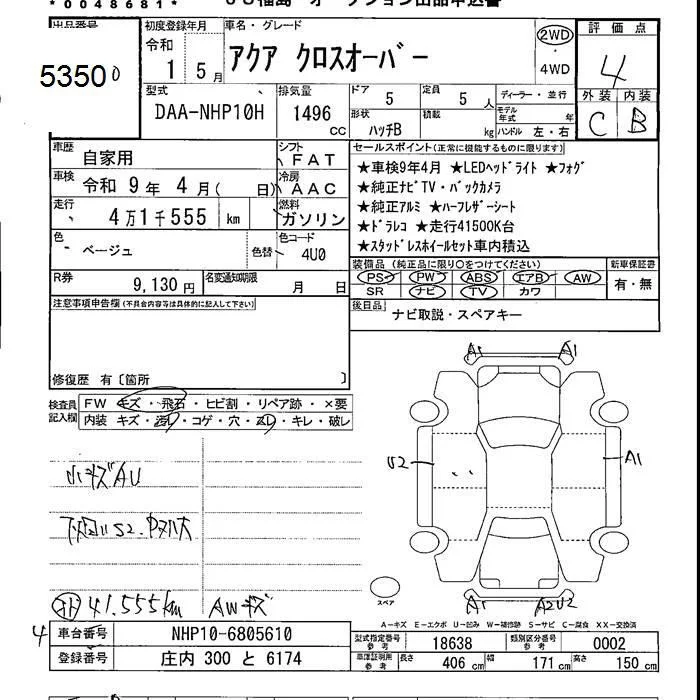 *0048681* JU福島 オークション出品申込書
出品番号 初度登録年月 車名・グレード 評価点
53500 令和 1 5月 アクア クロスオーバー 2WD 4WD 4
型式 排気量 ドア 定員 ディーラー・並行 外装 内装
DAA-NHP10H 1496 CC 5 5人 モデル年式 年 C B
形状 積載
ハッチB kg ハンドル 左・右
車歴 自家用 シフト FAT セールスポイント(正常に機能するものに限ります)
車検 令和 9年 4月( 日) 冷房 AAC ★車検9年4月 ★LEDヘッドライト ★フォグ
★純正ナビTV・バックカメラ
走行 4万1千555 km 燃料 ガソリン ★純正アルミ ★ハーフレザーシート
★ドラレコ ★走行41500K台
色 ベージュ 色替 色コード 4U0 ★スタッドレスホイールセット車内積込
R券 9,130円 名変通知期限 月 日 装備品(純正品に限り○をつけてください) 新車保証書
PS PW ABS エアB AW 有・無
SR ナビ TV カワ
注意事項申告欄(不具合内容等は具体的に記入して下さい) 後日品
ナビ取説・スペアキー
修復歴 有〔箇所 〕
検査員記入欄 FW キズ・飛石・ヒビ割・リペア跡・×要
内装 キズ・汚レ・コゲ・穴・スレ・キレ・破レ
A1 A1
U2 A1
小キズAU
下回リS2.
41.555km AWキズ
スペア A1 A2U2
A-キズ E-エクボ U-凹み W-補修跡 S-サビ C-腐食 XX-交換済
4 車台番号 NHP10-6805610 型式指定番号 参考 18638 類別区分番号 参考 0002
登録番号 庄内 300 と 6174 車庫証明用 参考 長さ 406 cm 幅 171 cm 高さ 150 cm